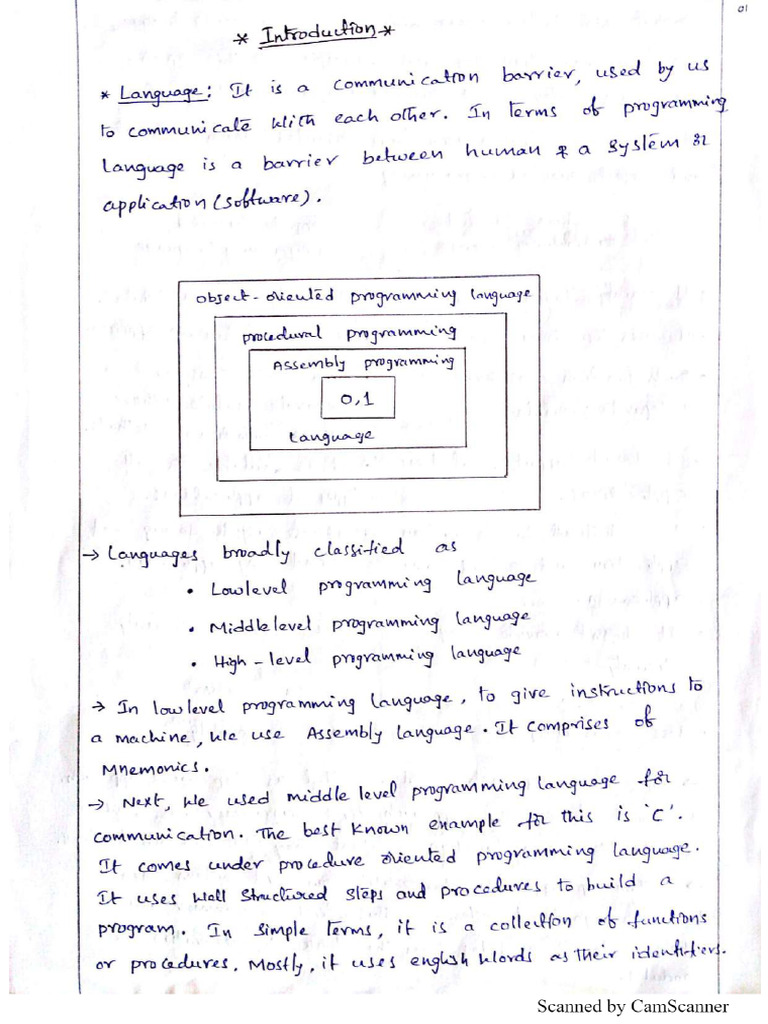 01
* Introduction *
* Language: It is a communication barrier, used by us
to communicate With each other. In terms of programming
language is a barrier between human & a system or
application (software).
object-oriented programming language
procedural programming
Assembly programming
0,1
Language
→ Languages broadly classified as
• Lowlevel programming language
• Middlelevel programming language
• High-level programming language
→ In lowlevel programming language, to give instructions to
a machine, We use Assembly language. It comprises of
Mnemonics.
→ Next, We used middle level programming language for
communication. The best known example for this is 'C'.
It comes under procedure oriented programming language.
It uses Well structured steps and procedures to build a
program. In simple terms, it is a collection of functions
or procedures. Mostly, it uses english Words as their identifiers.
Scanned by CamScanner